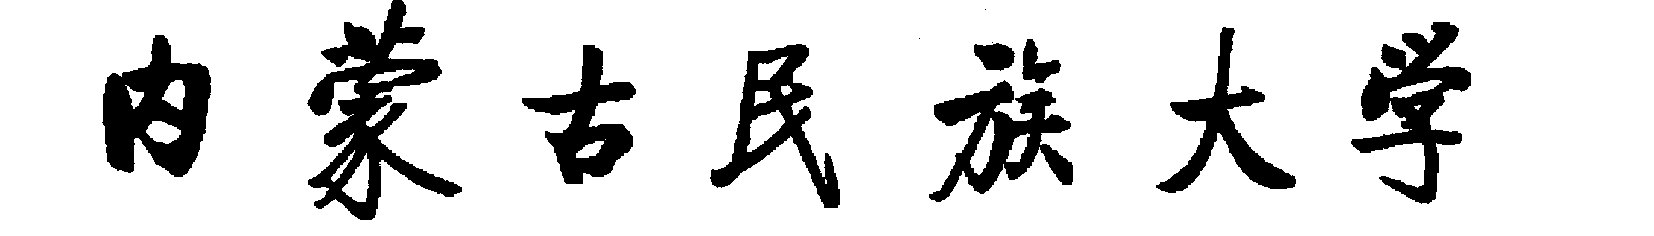 内蒙古民族大学